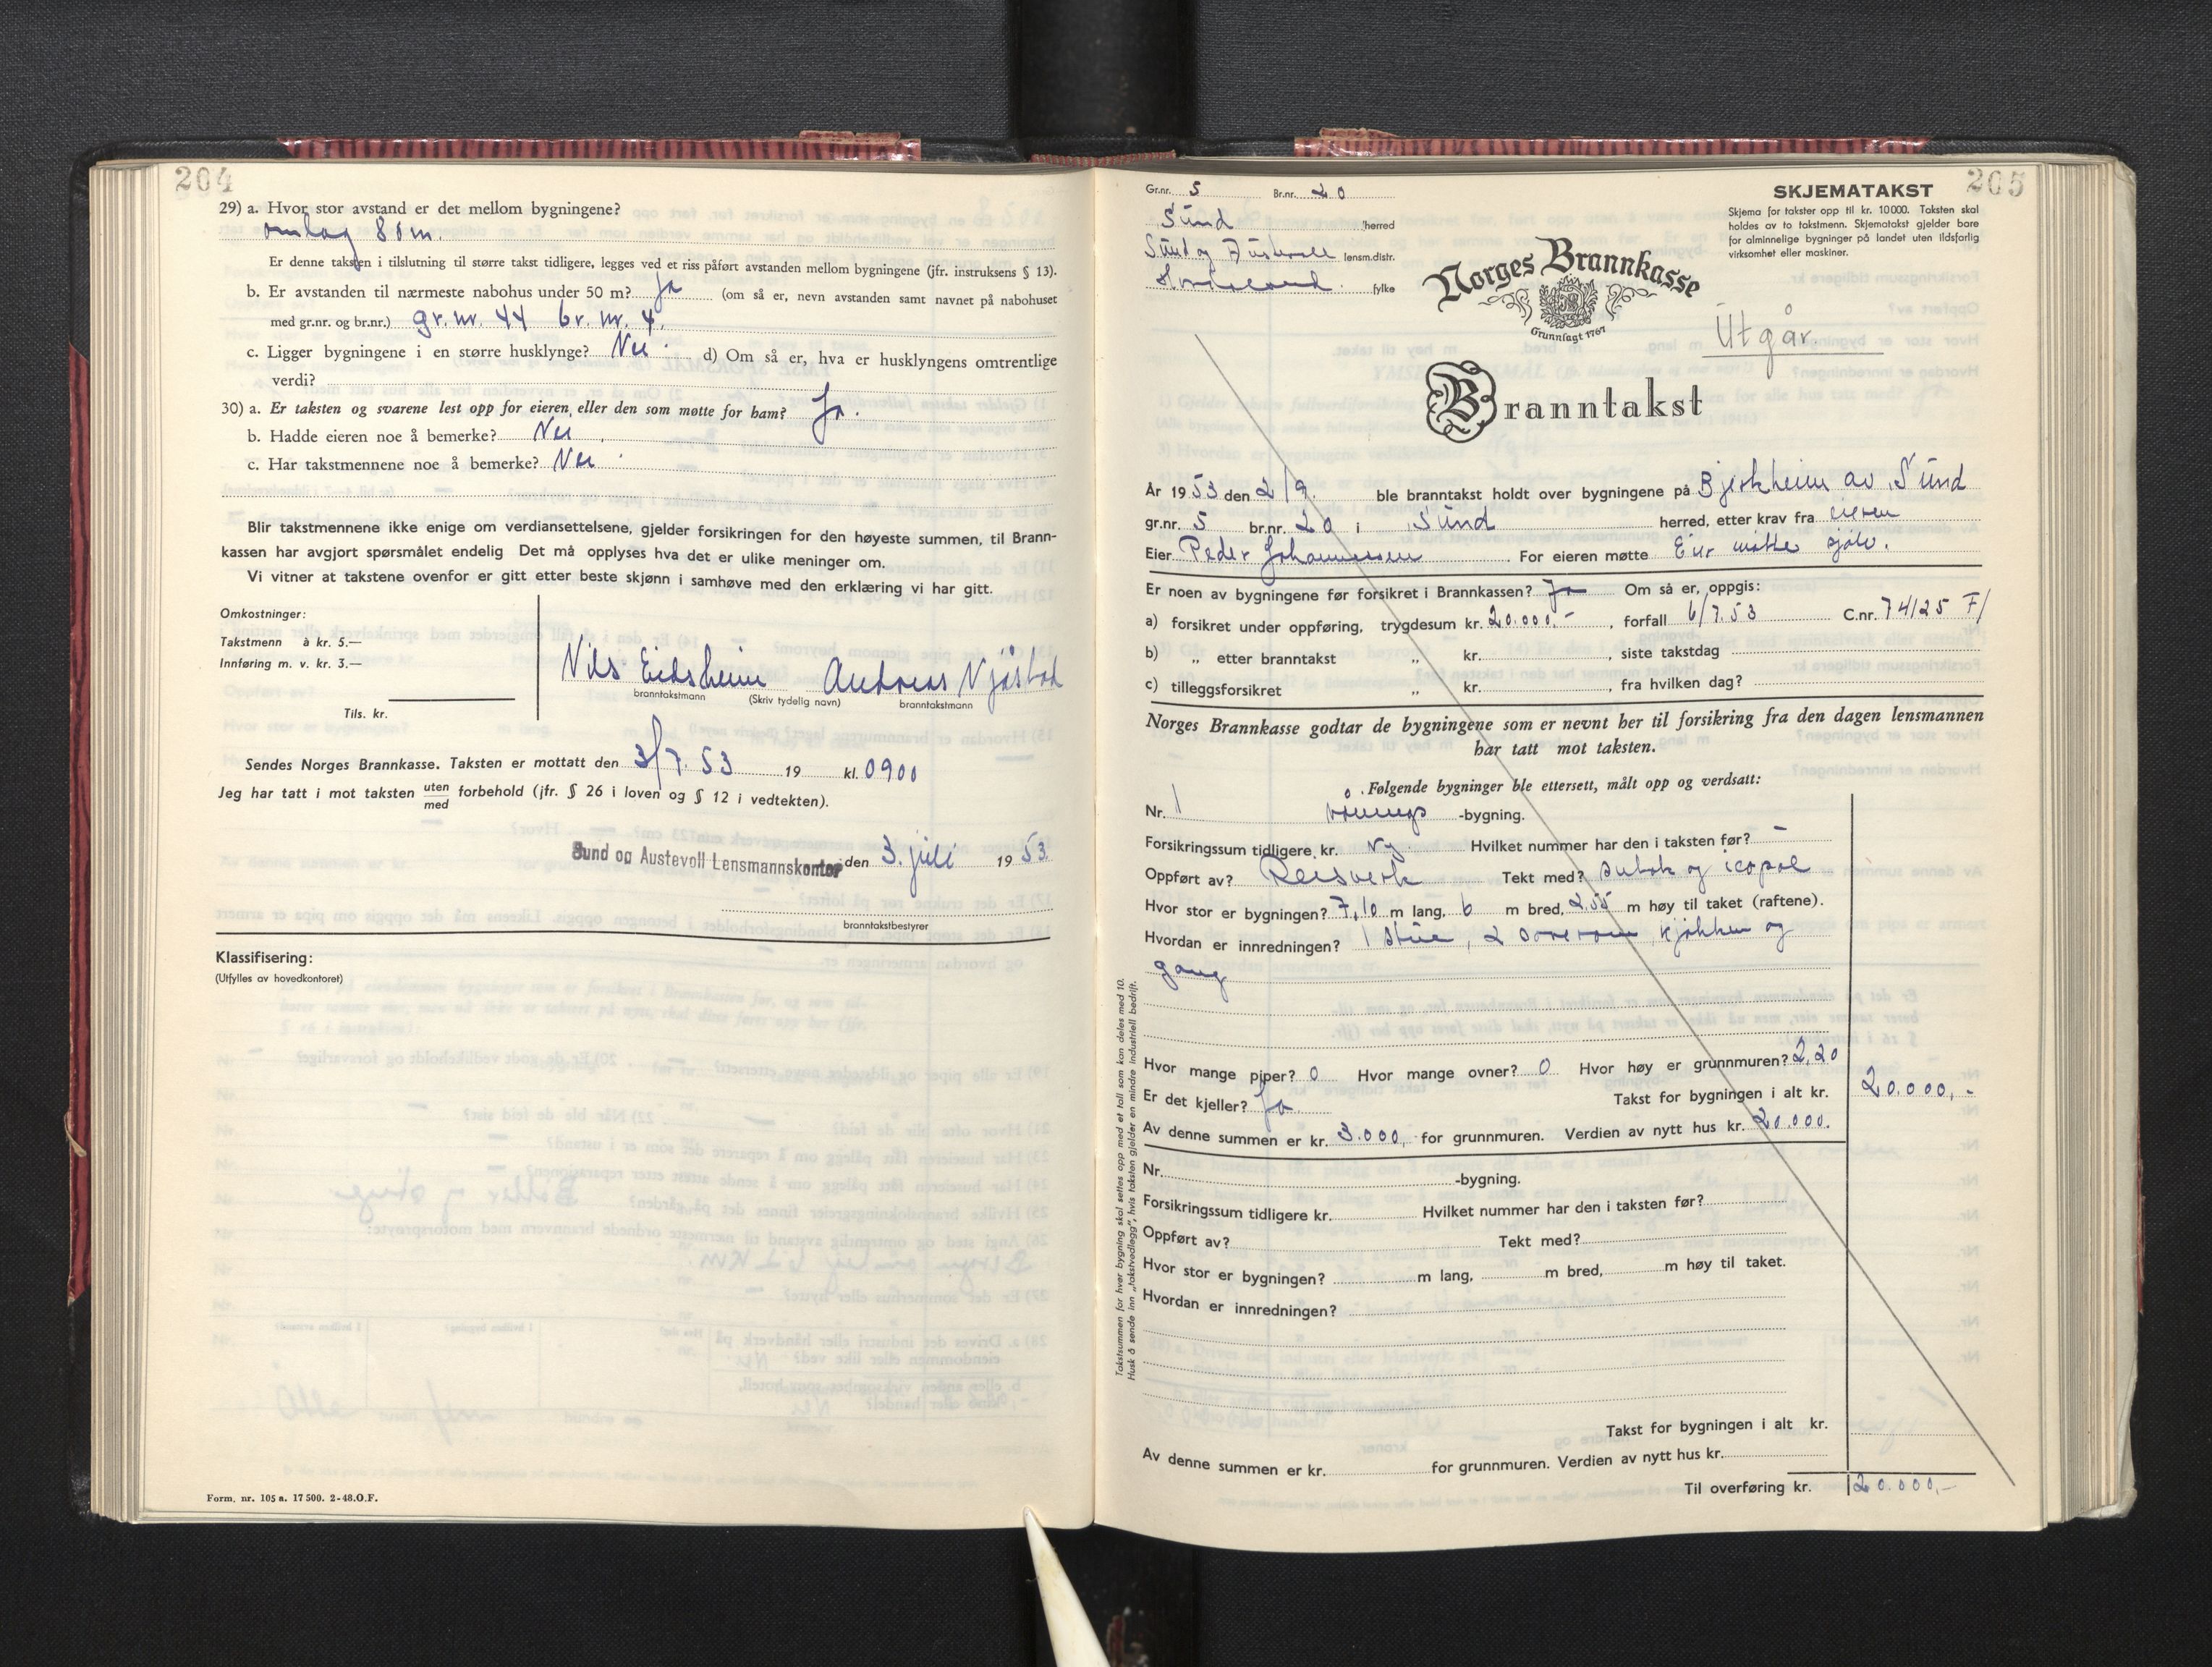 204
29) a. Hvor stor avstand er det mellom bygningene?
omlag 80 m.
Er denne taksten i tilslutning til større takst tidligere, legges ved et riss påført avstanden mellom bygningene (jfr. instruksens § 13).
b. Er avstanden til nærmeste nabohus under 50 m? Ja (om så er, nevn avstanden samt navnet på nabohuset
med gr.nr. og br.nr.) gr. nr. 44 br. nr. 4.
c. Ligger bygningene i en større husklynge? Nei. d) Om så er, hva er husklyngens omtrentlige
verdi?
30) a. Er taksten og svarene lest opp for eieren, eller den som møtte for ham? Ja.
b. Hadde eieren noe å bemerke? Nei.
c. Har takstmennene noe å bemerke? Nei.
Blir takstmennene ikke enige om verdiansettelsene, gjelder forsikringen for den høyeste summen, til Brann-
kassen har avgjort spørsmålet endelig Det må opplyses hva det er ulike meninger om.
Vi vitner at takstene ovenfor er gitt etter beste skjønn i samhøve med den erklæring vi har gitt.
Omkostninger:
Takstmenn à kr. 5.—
Innføring m. v. kr. 3.—
Tils. kr.
Nils Eidsheim Andreas Njåstad
branntakstmann (Skriv tydelig navn) branntakstmann
Sendes Norges Brannkasse. Taksten er mottatt den 3/7. 53 19 kl. 0900
Jeg har tatt i mot taksten uten/med forbehold (jfr. § 26 i loven og § 12 i vedtekten).
Sund og Austevoll Lensmannskontor den 3. juli 1953
branntakstbestyrer
Klassifisering:
(Utfylles av hovedkontoret)
Form. nr. 105 a. 17 500. 2-48. O.F.
205
Gr.nr. 5 Br.nr. 20
Sund herred
Sund og Austevoll lensm.distr.
Hordaland. fylke
SKJEMATAKST
Skjema for takster opp til kr. 10000. Taksten skal
holdes av to takstmenn. Skjematakst gjelder bare
for alminnelige bygninger på landet uten ildsfarlig
virksomhet eller maskiner.
Norges Brannkasse
Grunnlagt 1767
Utgår.
Branntakst
År 1953 den 2/9. ble branntakst holdt over bygningene på Bjerkheim av Sund
gr.nr. 5 br.nr. 20 i Sund herred, etter krav fra eieren
Eier Peder Johannessen For eieren møtte Eier møtte sjølv.
Er noen av bygningene før forsikret i Brannkassen? Ja Om så er, oppgis:
a) forsikret under oppføring, trygdesum kr. 20.000.-, forfall 6/7.53 C.nr. 74125 F/
b) „ etter branntakst „ kr. , siste takstdag
c) tilleggsforsikret „ kr. , fra hvilken dag?
Norges Brannkasse godtar de bygningene som er nevnt her til forsikring fra den dagen lensmannen
har tatt mot taksten.
Følgende bygninger ble ettersett, målt opp og verdsatt:
Nr. 1 vånings -bygning.
Forsikringssum tidligere kr. Ny. Hvilket nummer har den i taksten før? -
Oppført av? Reisverk Tekt med? sutak og icopal
Hvor stor er bygningen? 7,10 m lang, 6 m bred, 2,55 m høy til taket (raftene).
Hvordan er innredningen? 1 stue, 2 soverom, kjøkken og
gang
Hvor mange piper? 0 Hvor mange ovner? 0 Hvor høy er grunnmuren? 2,20
Er det kjeller? Ja Takst for bygningen i alt kr. 20.000,-
Av denne summen er kr. 3.000, for grunnmuren. Verdien av nytt hus kr. 20.000.
Nr. -bygning.
Forsikringssum tidligere kr. Hvilket nummer har den i taksten før?
Oppført av? Tekt med?
Hvor stor er bygningen? m lang, m bred, m høy til taket.
Hvordan er innredningen?
Takst for bygningen i alt kr.
Av denne summen er kr. for grunnmuren. Verdien av nytt hus kr.
Til overføring kr. 20.000,-
Takstsummen for hver bygning skal settes opp med et tall som kan deles med 10.
Husk å sende inn „takstvedlegg", hvis taksten gjelder en mindre industriell bedrift.